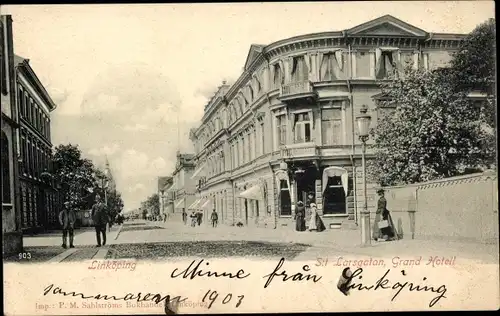 903
Linköping
St Larsgatan, Grand Hotell
Minne från Linköping
sommaren 1903
Imp: P. M. Sahlströms Bokhandel, Linköping